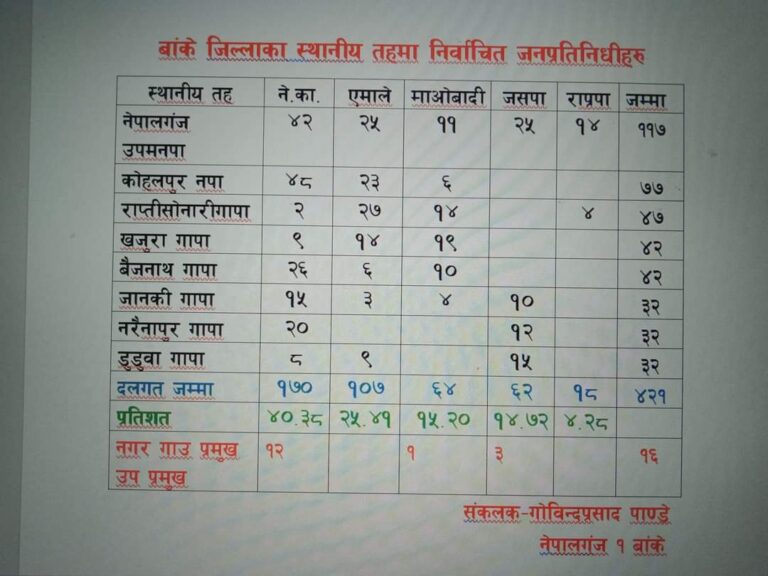 बांके जिल्लाका स्थानीय तहमा निर्वाचित जनप्रतिनिधीहरु
स्थानीय तह ने.का. एमाले माओबादी जसपा राप्रपा जम्मा
नेपालगंज ४२ २५ ११ २५ १४ ११७
उपमनपा
कोहलपुर नपा ४८ २३ ६ ७७
राप्तीसोनारीगापा २ २७ १४ ४ ४७
खजुरा गापा ९ १४ १९ ४२
बैजनाथ गापा २६ ६ १० ४२
जानकी गापा १५ ३ ४ १० ३२
नरैनापुर गापा २० १२ ३२
डुडुवा गापा ८ ९ १५ ३२
दलगत जम्मा १७० १०७ ६४ ६२ १८ ४२१
प्रतिशत ४०.३८ २५.४१ १५.२० १४.७२ ४.२८
नगर गाउ प्रमुख १२ १ ३ १६
उप प्रमुख
संकलक-गोविन्दप्रसाद पाण्डे
नेपालगंज १ बांके